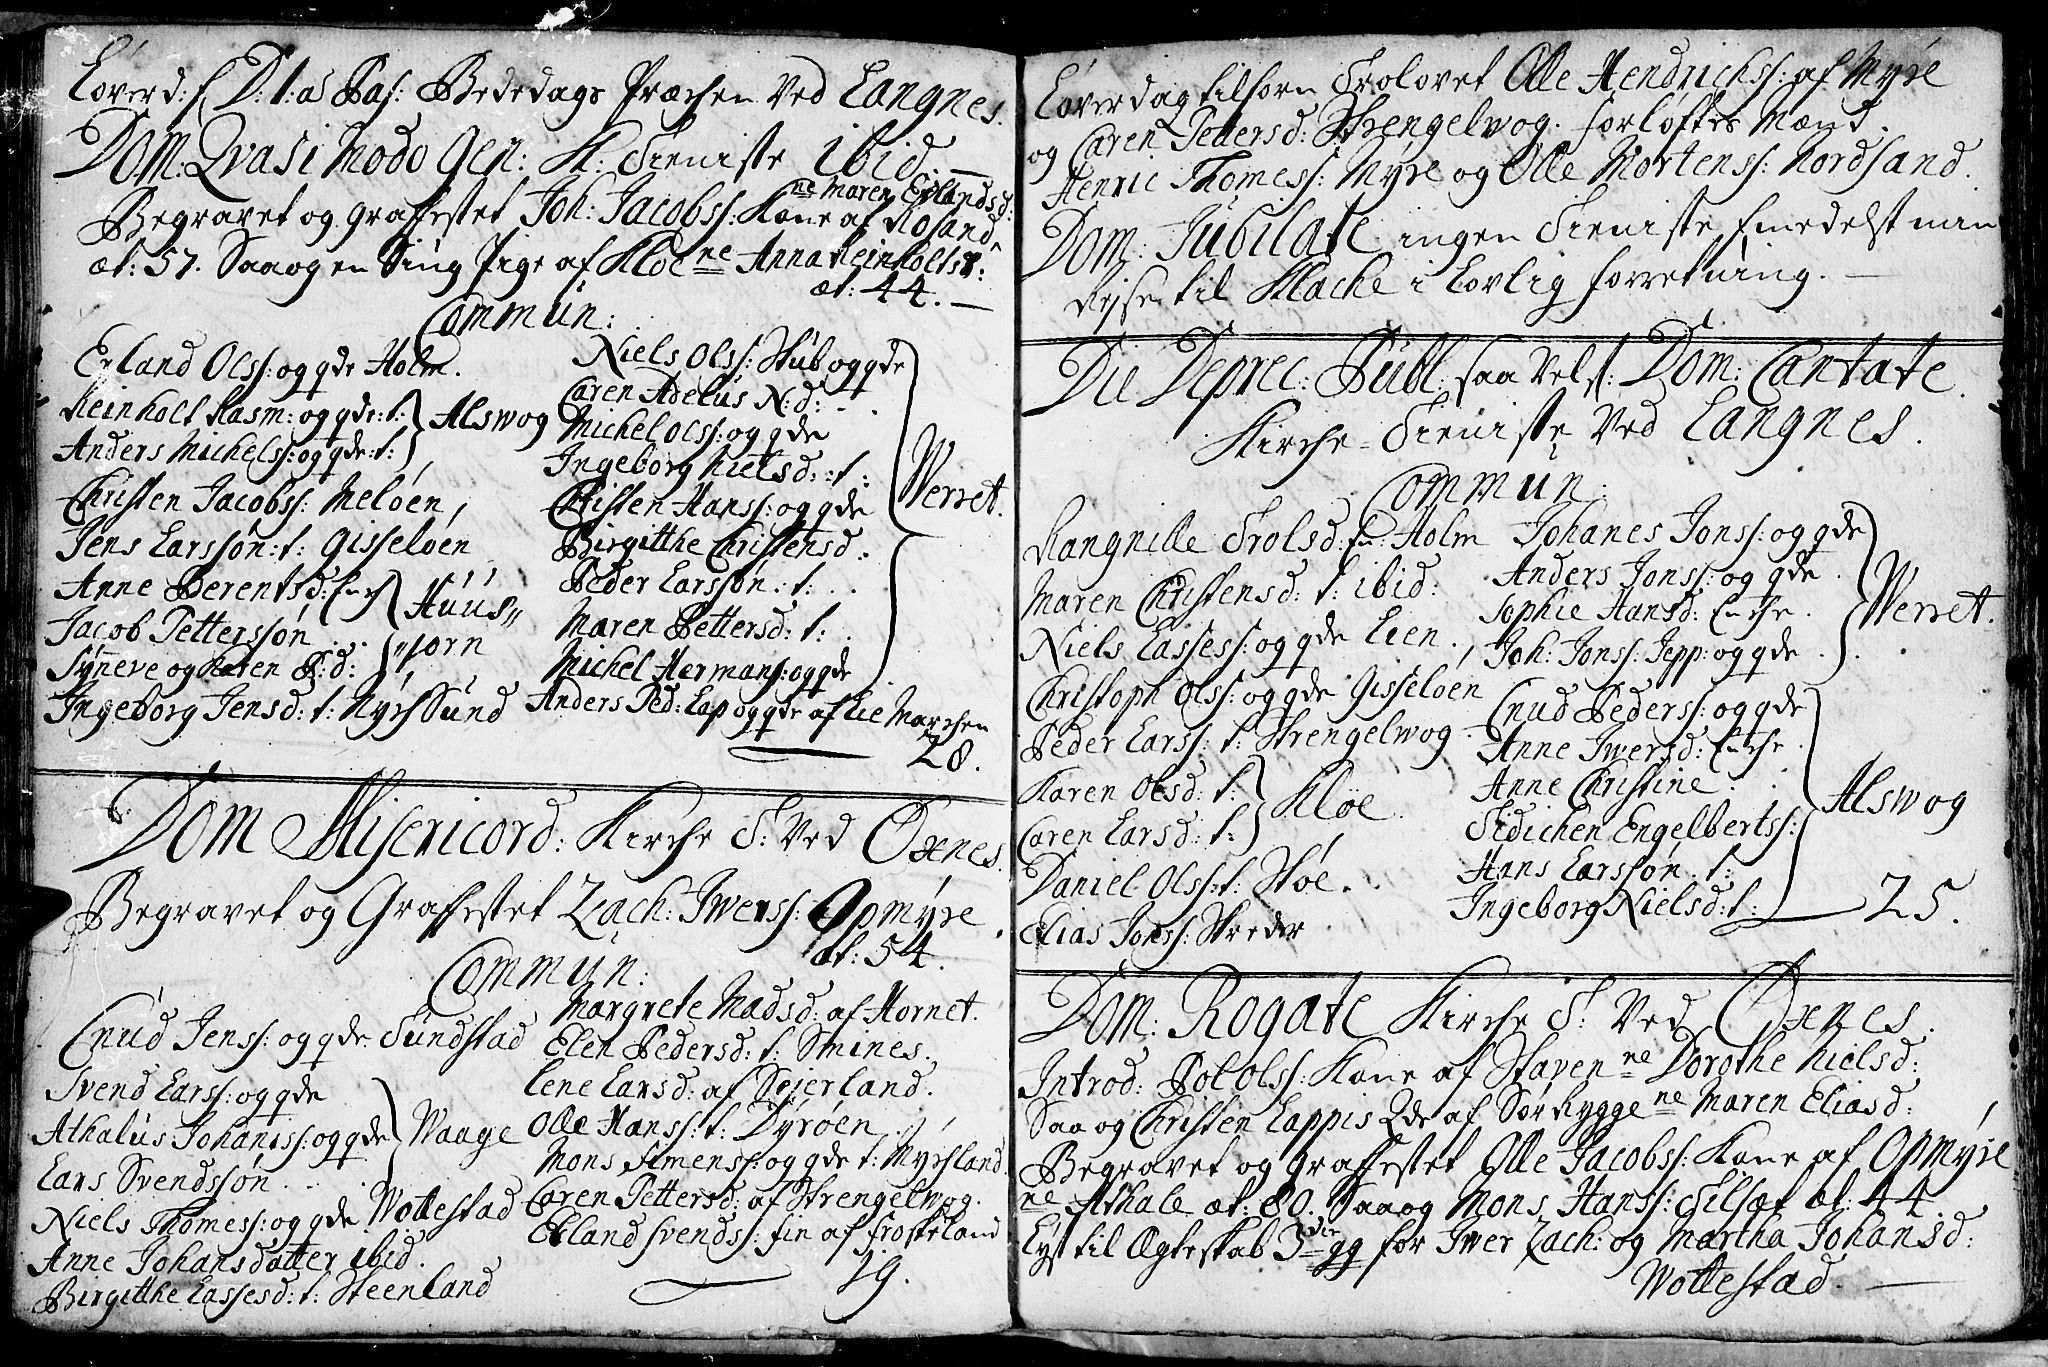 Loverd: f. D: 1: a Pas: Bededags Præchen Ved Langnes.
Dom: Qvasi Modo Gen: K: Tieniste ibid. —
Begravet og Graffestet Joh: Jacobss: Kone af Rosand
ne Maren Erlandsd:
æt: 57. Saa og en Sing Pige af Kloe ne Anna Reinholtsd:
æt: 44. —
Commun:
Erland Olss: og qde Holm.
Reinholt Rasm: og qde: t:
Anders Michelss: og qde: t:
Alswog
Christen Jacobss: Meløen,
Jens Larssøn: t: Gisseløen
Anne Berentsd: Enche
Jacob Petterssøn . .
Syneve og Karen P: d:
Huus„
„Torn
Ingeborg Jensd: t: Nyrh Sund
Niels Olss: Stub og qde
Caren Adelus N: d: . .
Michel Olss: og qde
Ingeborg Nielsd: t:
Christen Hanss: og qde
Birgitthe Christensd.
Peder Larssøn: t: . .
Maren Pettersd: t: .
Michel Hermanss: og qde
Werret.
Anders Ped: Lap og qde af Lie Marchen
28.
Dom Misericord: Kirche T: Ved Øxnes.
Begravet og Graffestet Zach: Iwerss: Opmyre.
æt: 54.
Commun:
Cnud Jenss: og qde Sundstad
Svend Larss: og qde
Athalus Johaniss: og qde
Lars Svendssøn . . .
Waage
Niels Thomess: og qde Wottestad
Anne Johansdatter ibid.
Birgitthe Lassesd: t: Steenland
Margrete Madsd: af Hornet.
Elen Pedersd: t: Smines.
Lene Larsd: af Seierland.
Olle Hanss: t: Dyrøen . .
Mons Simenss: og qde t: Myrhland.
Caren Pettersd: af Strengelwog.
Erland Svends: fin af Froskeland
19.
Loverdag tilforn Trolovet Olle Hendrichss: af Myre
og Caren Pedersd: Strengelwog. Forløftes Mænd.
Henric Thomess: Myre og Olle Mortenss: Nordsand.
Dom: Jubilate ingen Tieniste Emedelst min
Rejse til Klache i Lovlig forretning. —
Die Deprec: Publ. saa vels: Dom: Cantate.
Kirche-Tieniste Ved Langnes.
Commun:
Rangnille Trolsd: En: Holm
Maren Christensd: t: ibid:
Niels Lassess: og qde Lien.
Christoph Olss: og qde Gisseløen
Peder Larss: t: Strengelwog.
Karen Olsd: t:
Caren Larsd: t:
Kløe.
Daniel Olss: t: Støe.
Elias Jonss: Skreder
Johanes Jonss: og qde
Anders Jonss: og qde.
Sophie Hansd: Enche.
Joh: Jonss: Jepp: og qde.
Werret.
Cnud Pederss: og qde
Anne Iwersd: Enche.
Anne Christine . .
Didichen Engelbertss:
Hans Larssøn: t:
Ingeborg Nielsd: t:
Alswog
25.
Dom: Rogate Kirche T: Ved Øxnes.
Introd: Pol Olss: Kone af Staven ne Dorothe Nielsd:
Saa og Christen Lappis Qde af Sørrygge ne Maren Eliasd:
Begravet og Graffestet Olle Jacobss: Kone af Opmyre
ne Athale æt: 80. Saa og Mons Hanss: Tilset æt: 44.
Lyst til Ægteskab 3die gg for Iwer Zach: og Martha Johansd:
Wottestad. —